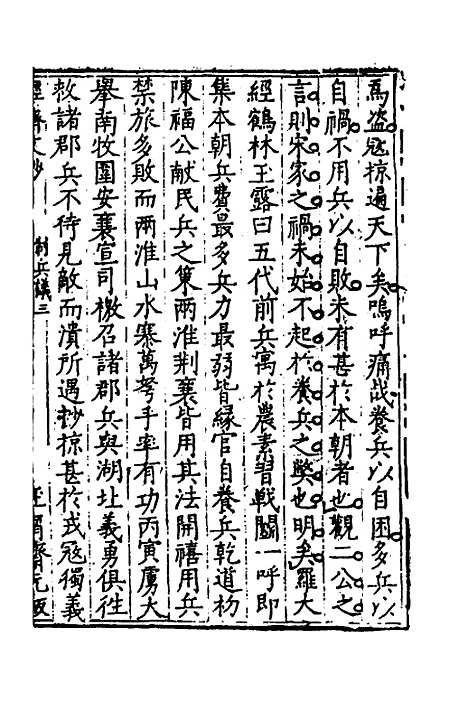 為盗寇掠遍天下矣嗚呼痛哉養兵以自困多兵以
自禍不用兵以自敗未有甚於本朝者也觀二公之
言則宋家之禍未始不起於養兵之弊也明矣羅大
經鶴林玉露曰五代前兵寓於農素習戰鬬一呼即
集本朝兵費最多兵力最弱皆緣官自養兵乾道初
陳福公献民兵之策两淮荆襄皆用其法開禧用兵
禁旅多敗而两淮山水寨萬弩手率有功丙寅虜大
舉南牧圍安襄宣司檄召諸郡兵與湖北義勇俱往
救諸郡兵不待見敵而潰所遇抄掠甚於戎寇獨義
經濟文抄 制兵議三